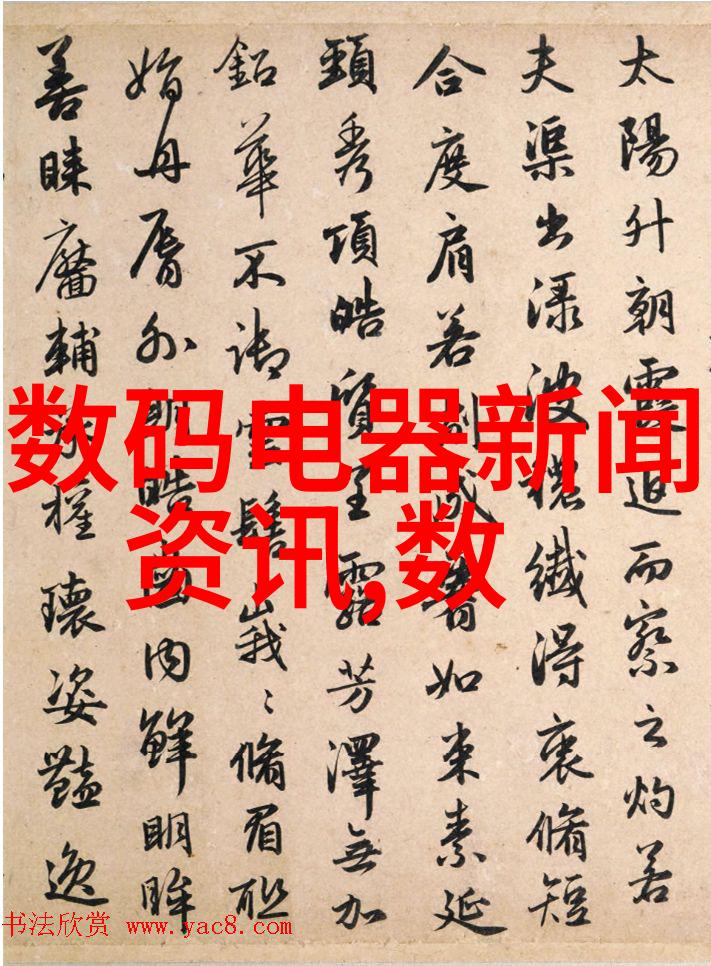 太陽升朝霞迫而察之灼若
夫渠出淥波穠纖得衷脩短
合度肩若削成如束素延
頸秀項皓質呈露芳澤無加
鉛華不御雲髻峩〻脩眉聯
娟丹脣外朗皓齒内鮮明眸
善睞靨輔承權瓌姿豔逸
数码电器新闻
资讯,数
书法欣赏 www.yac8.com